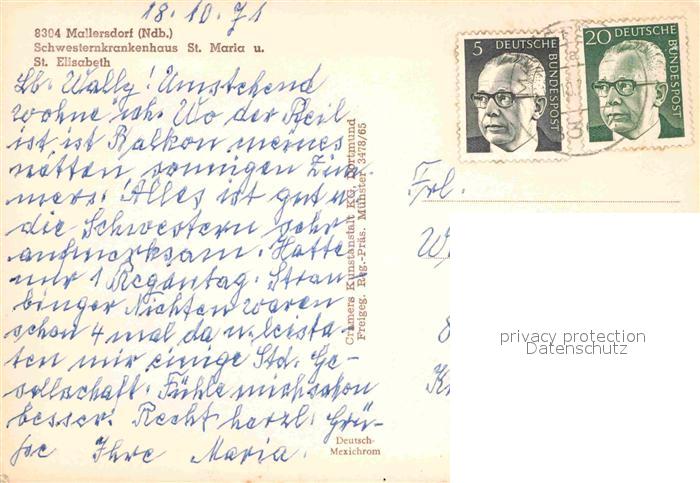 18.10.71
8304 Mallersdorf (Ndb.)
Schwesternkrankenhaus St. Maria u.
St. Elisabeth
Lb. Wally! Umstehend
wohne ich. Wo der Pfeil
ist ist Balkon meines
netten, sonnigen Zim
mers. Alles ist gut u.
die Schwestern sehr
aufmerksam. Hatte
nur 1 Regentag. Strau
binger Nichten waren
schon 4 mal da u. leiste
ten mir einige Std. Ge-
sellschaft. Fühle mich schon
besser! Recht herzl. Grü-
ße Ihre Maria.
Cramers Kunstanstalt KG, Dortmund
Freigeg. Reg.-Präs. Münster 3478/65
Deutsch-
Mexichrom
5 DEUTSCHE
BUNDESPOST
20 DEUTSCHE
BUNDESPOST
Frl.
privacy protection
Datenschutz